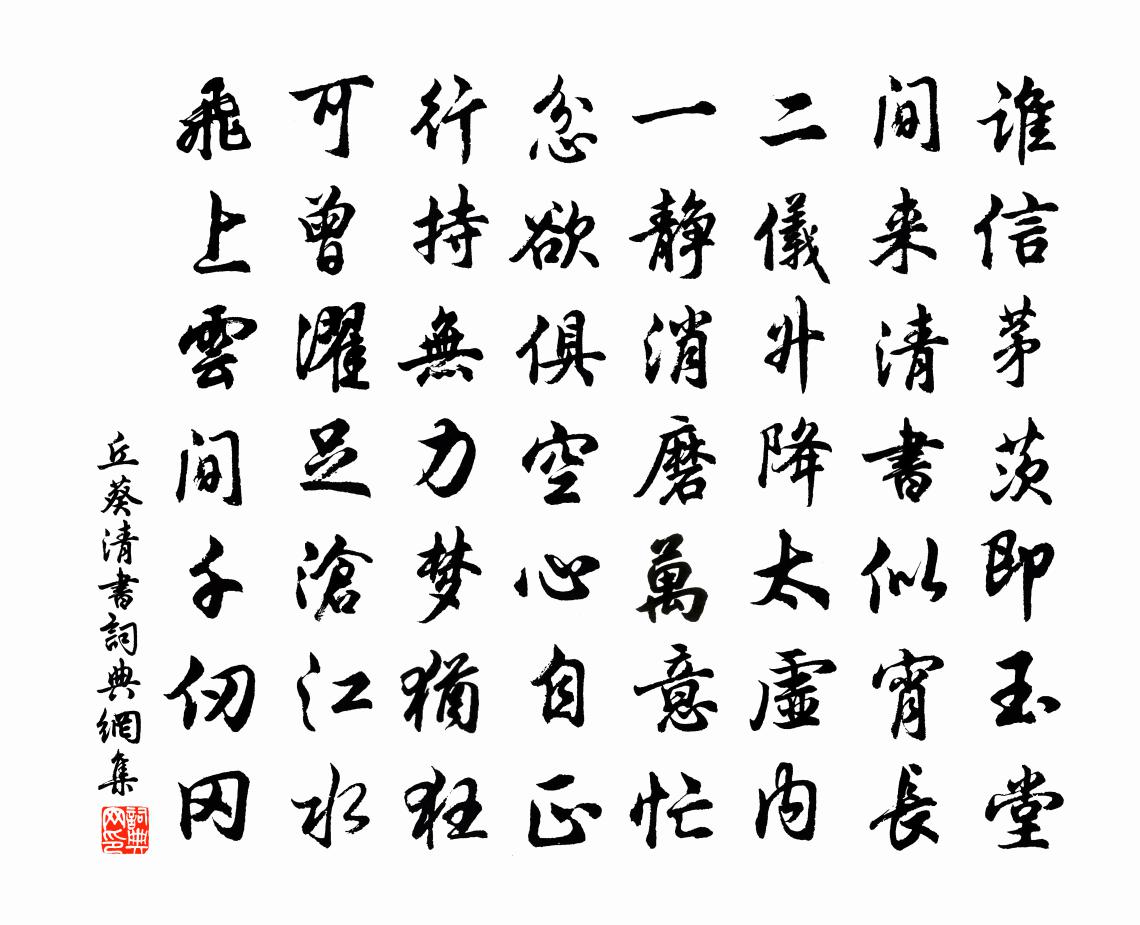 谁信茅茨即玉堂
间来清書似宵長
二儀升降太虚内
一静消磨萬意忙
忿欲俱空心自正
行持無力梦猶狂
可曾濯足滄江水
飛上雲间千仞冈
丘葵清書詞典網集
詞典网印